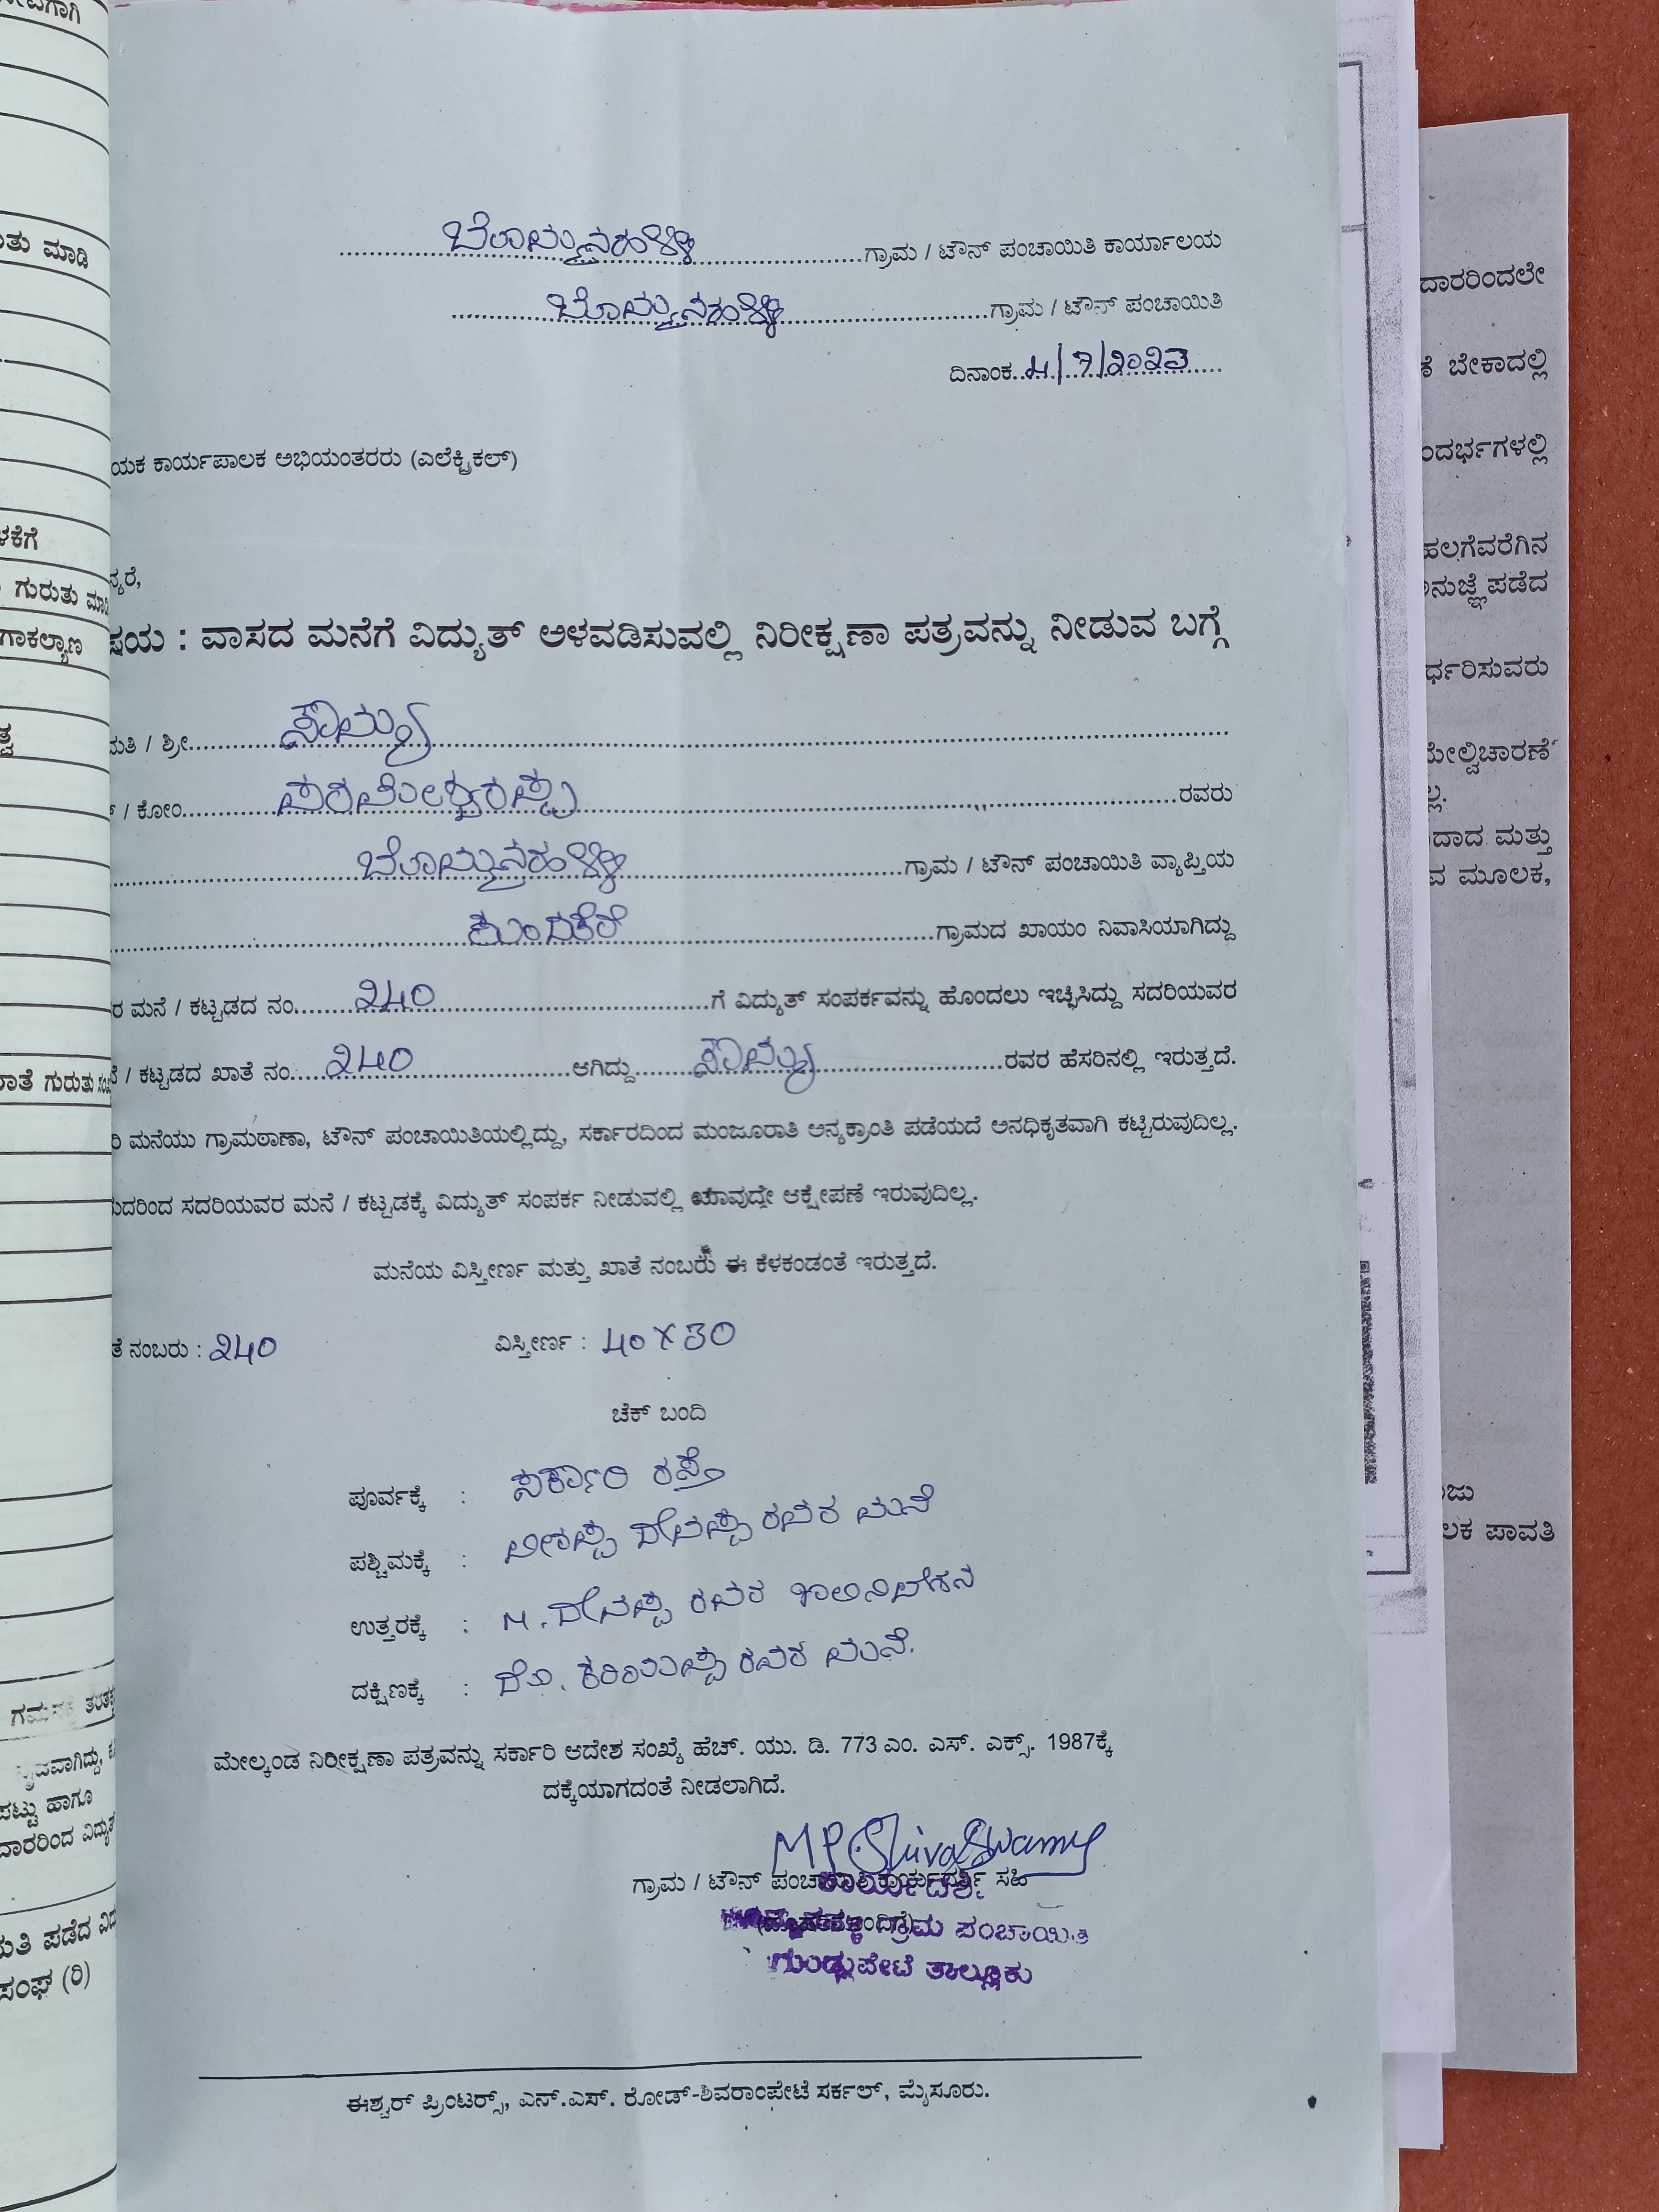 ಬೊಮ್ಮನಹಳ್ಳಿ ಗ್ರಾಮ / ಟೌನ್ ಪಂಚಾಯಿತಿ ಕಾರ್ಯಾಲಯ
ಬೊಮ್ಮನಹಳ್ಳಿ ಗ್ರಾಮ / ಟೌನ್ ಪಂಚಾಯಿತಿ
ದಿನಾಂಕ 4/7/2023
ಯಕ ಕಾರ್ಯಪಾಲಕ ಅಭಿಯಂತರರು (ಎಲೆಕ್ಟ್ರಿಕಲ್)
ನ್ಯರೆ,
ಷಯ : ವಾಸದ ಮನೆಗೆ ವಿದ್ಯುತ್ ಅಳವಡಿಸುವಲ್ಲಿ ನಿರೀಕ್ಷಣಾ ಪತ್ರವನ್ನು ನೀಡುವ ಬಗ್ಗೆ
ಮತಿ / ಶ್ರೀ ಸೌಮ್ಯ
/ ಕೋಂ ಪರಮೇಶ್ವರಪ್ಪ ರವರು
ಬೊಮ್ಮನಹಳ್ಳಿ ಗ್ರಾಮ / ಟೌನ್ ಪಂಚಾಯಿತಿ ವ್ಯಾಪ್ತಿಯ
ಕುಂದಕೆರೆ ಗ್ರಾಮದ ಖಾಯಂ ನಿವಾಸಿಯಾಗಿದ್ದು
ರ ಮನೆ / ಕಟ್ಟಡದ ನಂ. 240 ಗೆ ವಿದ್ಯುತ್ ಸಂಪರ್ಕವನ್ನು ಹೊಂದಲು ಇಚ್ಛಿಸಿದ್ದು ಸದರಿಯವರ
ನೆ / ಕಟ್ಟಡದ ಖಾತೆ ನಂ. 240 ಆಗಿದ್ದು ಸೌಮ್ಯ ರವರ ಹೆಸರಿನಲ್ಲಿ ಇರುತ್ತದೆ.
ರಿ ಮನೆಯು ಗ್ರಾಮಠಾಣಾ, ಟೌನ್ ಪಂಚಾಯಿತಿಯಲ್ಲಿದ್ದು, ಸರ್ಕಾರದಿಂದ ಮಂಜೂರಾತಿ ಅನ್ಯಕ್ರಾಂತಿ ಪಡೆಯದೆ ಅನಧಿಕೃತವಾಗಿ ಕಟ್ಟಿರುವುದಿಲ್ಲ.
ುದರಿಂದ ಸದರಿಯವರ ಮನೆ / ಕಟ್ಟಡಕ್ಕೆ ವಿದ್ಯುತ್ ಸಂಪರ್ಕ ನೀಡುವಲ್ಲಿ ಯಾವುದೇ ಆಕ್ಷೇಪಣೆ ಇರುವುದಿಲ್ಲ.
ಮನೆಯ ವಿಸ್ತೀರ್ಣ ಮತ್ತು ಖಾತೆ ನಂಬರು ಈ ಕೆಳಕಂಡಂತೆ ಇರುತ್ತದೆ.
ತೆ ನಂಬರು : 240 ವಿಸ್ತೀರ್ಣ : 40 X 30
ಚೆಕ್ ಬಂದಿ
ಪೂರ್ವಕ್ಕೆ : ಸರ್ಕಾರಿ ರಸ್ತೆ
ಪಶ್ಚಿಮಕ್ಕೆ : ದೇವಪ್ಪ ರವರ ಮನೆ
ಉತ್ತರಕ್ಕೆ : M. ದೇವಪ್ಪ ರವರ ಖಾಲಿನಿವೇಶನ
ದಕ್ಷಿಣಕ್ಕೆ : ದೊ. ಕರಿಯಪ್ಪ ರವರ ಮನೆ.
ಮೇಲ್ಕಂಡ ನಿರೀಕ್ಷಣಾ ಪತ್ರವನ್ನು ಸರ್ಕಾರಿ ಆದೇಶ ಸಂಖ್ಯೆ ಹೆಚ್. ಯು. ಡಿ. 773 ಎಂ. ಎಸ್. ಎಕ್ಸ್. 1987ಕ್ಕೆ
ದಕ್ಕೆಯಾಗದಂತೆ ನೀಡಲಾಗಿದೆ.
MP Shivaswamy
ಗ್ರಾಮ / ಟೌನ್ ಪಂಚಾಯಿತಿ ಕಾರ್ಯದರ್ಶಿ ಸಹಿ
ಕಾರ್ಯದರ್ಶಿ
ಗ್ರಾಮ ಪಂಚಾಯಿತಿ
ಗುಂಡ್ಲುಪೇಟೆ ತಾಲ್ಲೂಕು
ಈಶ್ವರ್ ಪ್ರಿಂಟರ್ಸ್, ಎನ್.ಎಸ್. ರೋಡ್-ಶಿವರಾಂಪೇಟೆ ಸರ್ಕಲ್, ಮೈಸೂರು.
ತು ಮಾಡಿ
ಳಕೆಗೆ
ಗುರುತು ಮಾಡಿ
ಗಾಕಲ್ಯಾಣ
ರಾತೆ ಗುರುತು
ಪಟ್ಟು ಹಾಗೂ
ದಾರರಿಂದ ವಿದ್ಯುತ್
ಮತಿ ಪಡೆದ
ಸಂಘ (ರಿ)
ದಾರರಿಂದಲೇ
ಕೆ ಬೇಕಾದಲ್ಲಿ
ಂದರ್ಭಗಳಲ್ಲಿ
ಹಲಗೆವರೆಗಿನ
ನುಜ್ಞೆ ಪಡೆದ
ರ್ಧರಿಸುವರು
ಮೇಲ್ವಿಚಾರಣೆ
ಲ್ಲ.
ದಾದ ಮತ್ತು
ವ ಮೂಲಕ,
ಜು
ಲಕ ಪಾವತಿ